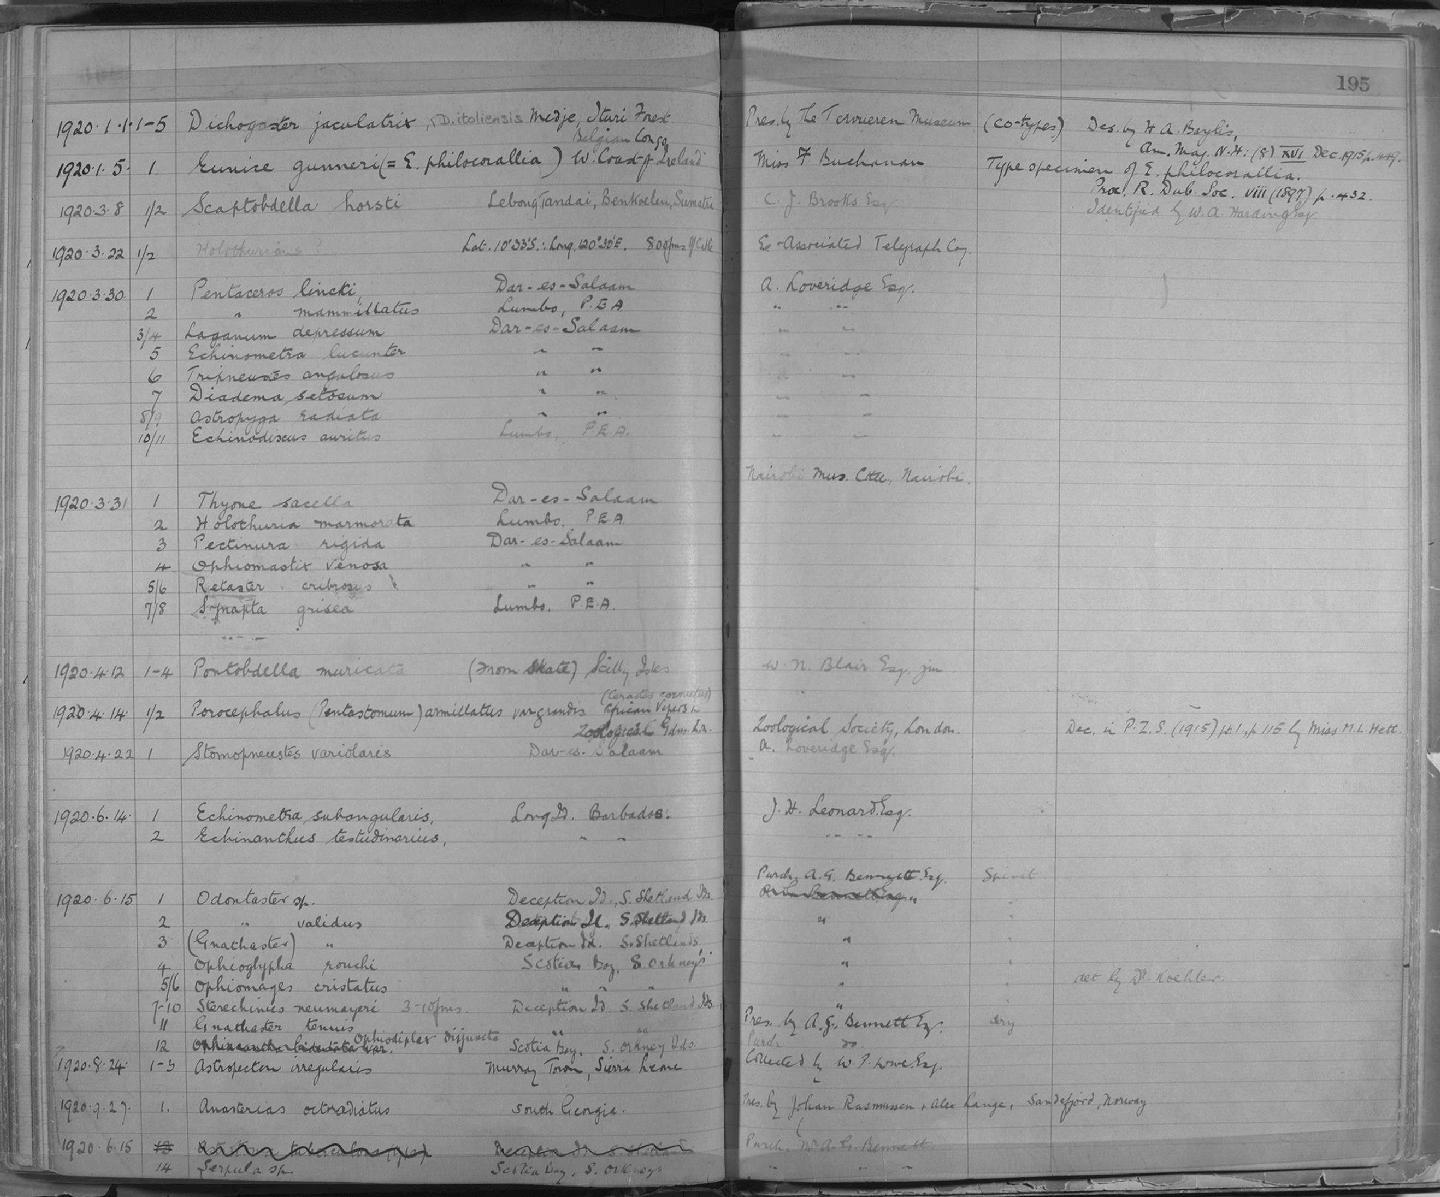 195
1920.1.1.1-5 Dichogaster jaculatrix, D. itoliensis Medje, Ituri Forest Pres. by The Tervueren Museum (co-types) Des. by H. A. Baylis,
Belgian Congo An. Mag. N.H. (8) XVI Dec. 1915 p. 449.
1920.1.5. 1. Eunice gunneri (= E. philocorallia) W. Coast of Ireland Miss F Buchanan Type specimen of E. philocorallia.
Proc. R. Dub. Soc. VIII (1897) p. 432.
1920.3.8 1/2 Scaptobdella horsti Lebong Tandai, Benkoelen, Sumatra C. J. Brooks Esq. Identified by W. A. Harding Esq.
1920.3.22 1/2 Holothurians? Lat. 10°33'S. Long. 120°30'E. 800 fms off Cable Ex-Associated Telegraph Coy.
1920.3.30. 1 Pentaceros lincki, Dar-es-Salaam A. Loveridge Esq.
2 " mammillatus Lumbo, P.E.A " "
3/4 Laganum depressum Dar-es-Salaam " "
5 Echinometra lucunter " " " "
6 Tripneustes angulosus " " " "
7 Diadema setosum " " " "
8/9 Astropyga radiata " " " "
10/11 Echinodiscus auritus Lumbo, P.E.A. " "
Nairobi Mus. Cttee, Nairobi.
1920.3.31 1 Thyone sacella Dar-es-Salaam
2 Holothuria marmorata Lumbo, P.E.A
3 Pectinura rigida Dar-es-Salaam
4 Ophiomastix venosa " "
5/6 Retaster cribrosus " "
7/8 Synapta grisea Lumbo, P.E.A.
1920.4.12 1-4 Pontobdella muricata (From Skate) Scilly Isles W. N. Blair Esq. jun
(Cerastes cornutus)
1920.4.14. 1/2 Porocephalus (Pentastomum) armillatus var grandis African Vipers
Zoological Gdns. Lon. Zoological Society, London. Dec. in P.Z.S. (1915) pt. 1, p 115 by Miss M.L. Hett.
1920.4.22 1 Stomopneustes variolaris Dar-es-Salaam A. Loveridge Esq.
1920.6.14. 1 Echinometra subangularis, Long Id. Barbados. J. H. Leonard Esq.
2 Echinanthus testudinarius, " " " "
Purch. A. G. Bennett Esq. Spirit
1920.6.15 1 Odontaster sp. Deception Id., S. Shetland Ids "
2 " validus Deception Id., S. Shetland Ids. "
3 (Gnathaster) " Deception Id. S. Shetlands, "
4 Ophioglypha rouchi Scotia Bay, S. Orkneys "
5/6 Ophiomages cristatus " " " " det by Dr. Koehler.
7-10 Sterechinus neumayeri 3-10 fms. Deception Id. S. Shetland Ids "
11 Gnathaster tenuis " " Pres. by A. G. Bennett Esq. dry
12 Ophiacantha bidentata var. Ophiodiplax disjuncta Scotia Bay, S. Orkney Ids. Purch do.
1920.8.24. 1-3 Astropecten irregularis Murray Town, Sierra Leone Collected by W. P. Lowe Esq.
1920.9.27. 1. Anasterias octoradiatus South Georgia. Pres. by Johan Rasmussen & Alex Lange, Sandefjord, Norway
1920.6.15 13 Deception Id. S. Shetland Purch. Mr. A. G. Bennett
14 Serpula sp. Scotia Bay, S. Orkneys " " "